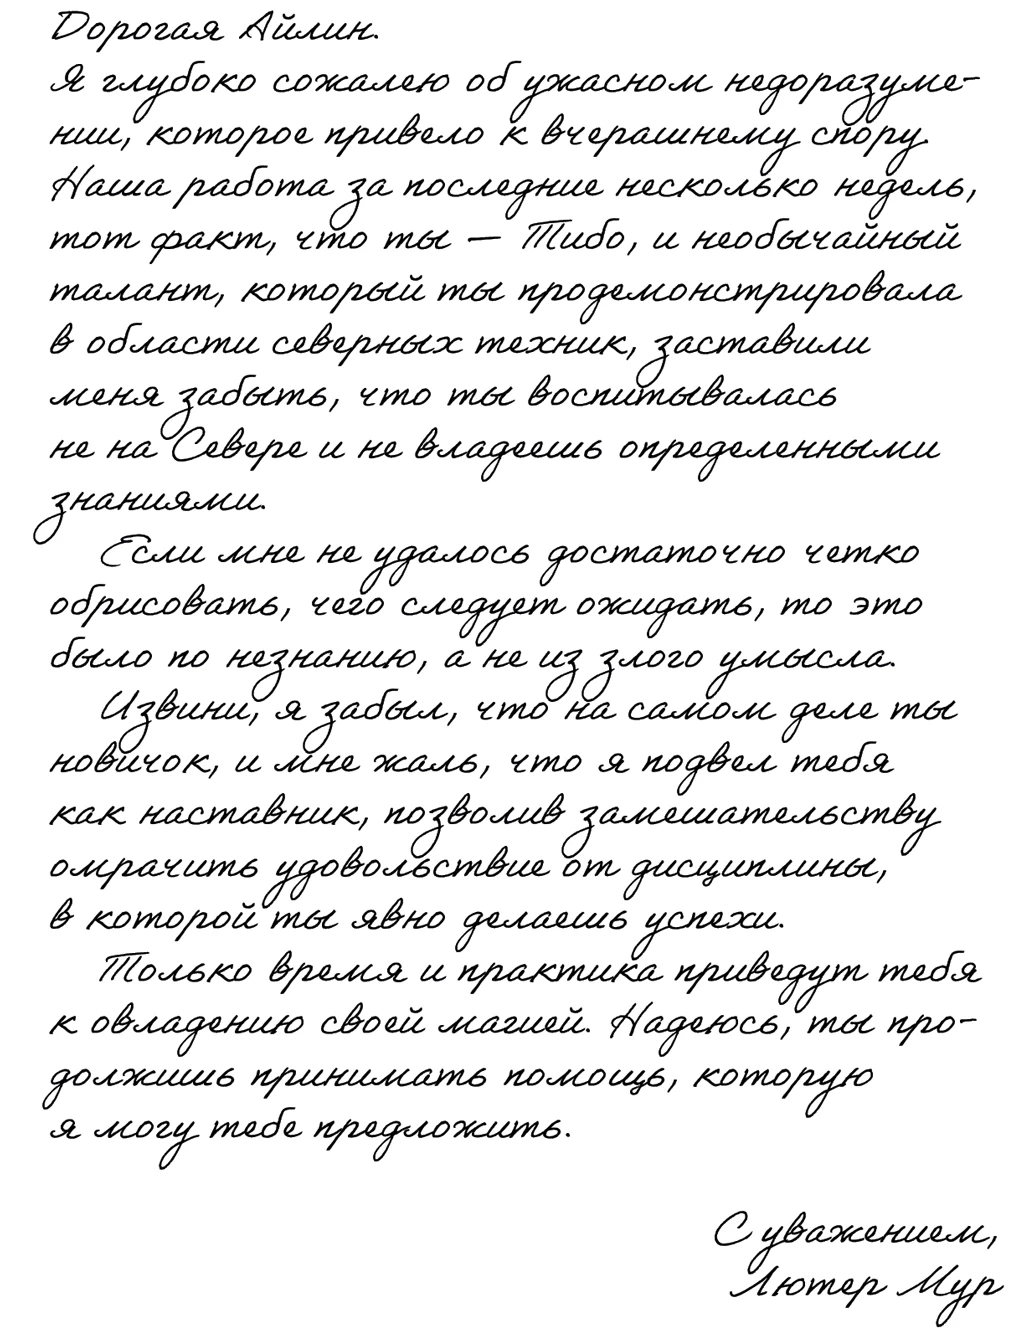 Дорогая Айлин.
Я глубоко сожалею об ужасном недоразуме-
нии, которое привело к вчерашнему спору.
Наша работа за последние несколько недель,
тот факт, что ты — Тибо, и необычайный
талант, который ты продемонстрировала
в области северных техник, заставили
меня забыть, что ты воспитывалась
не на Севере и не владеешь определенными
знаниями.
Если мне не удалось достаточно четко
обрисовать, чего следует ожидать, то это
было по незнанию, а не из злого умысла.
Извини, я забыл, что на самом деле ты
новичок, и мне жаль, что я подвел тебя
как наставник, позволив замешательству
омрачить удовольствие от дисциплины,
в которой ты явно делаешь успехи.
Только время и практика приведут тебя
к овладению своей магией. Надеюсь, ты про-
должишь принимать помощь, которую
я могу тебе предложить.
С уважением,
Лютер Мур